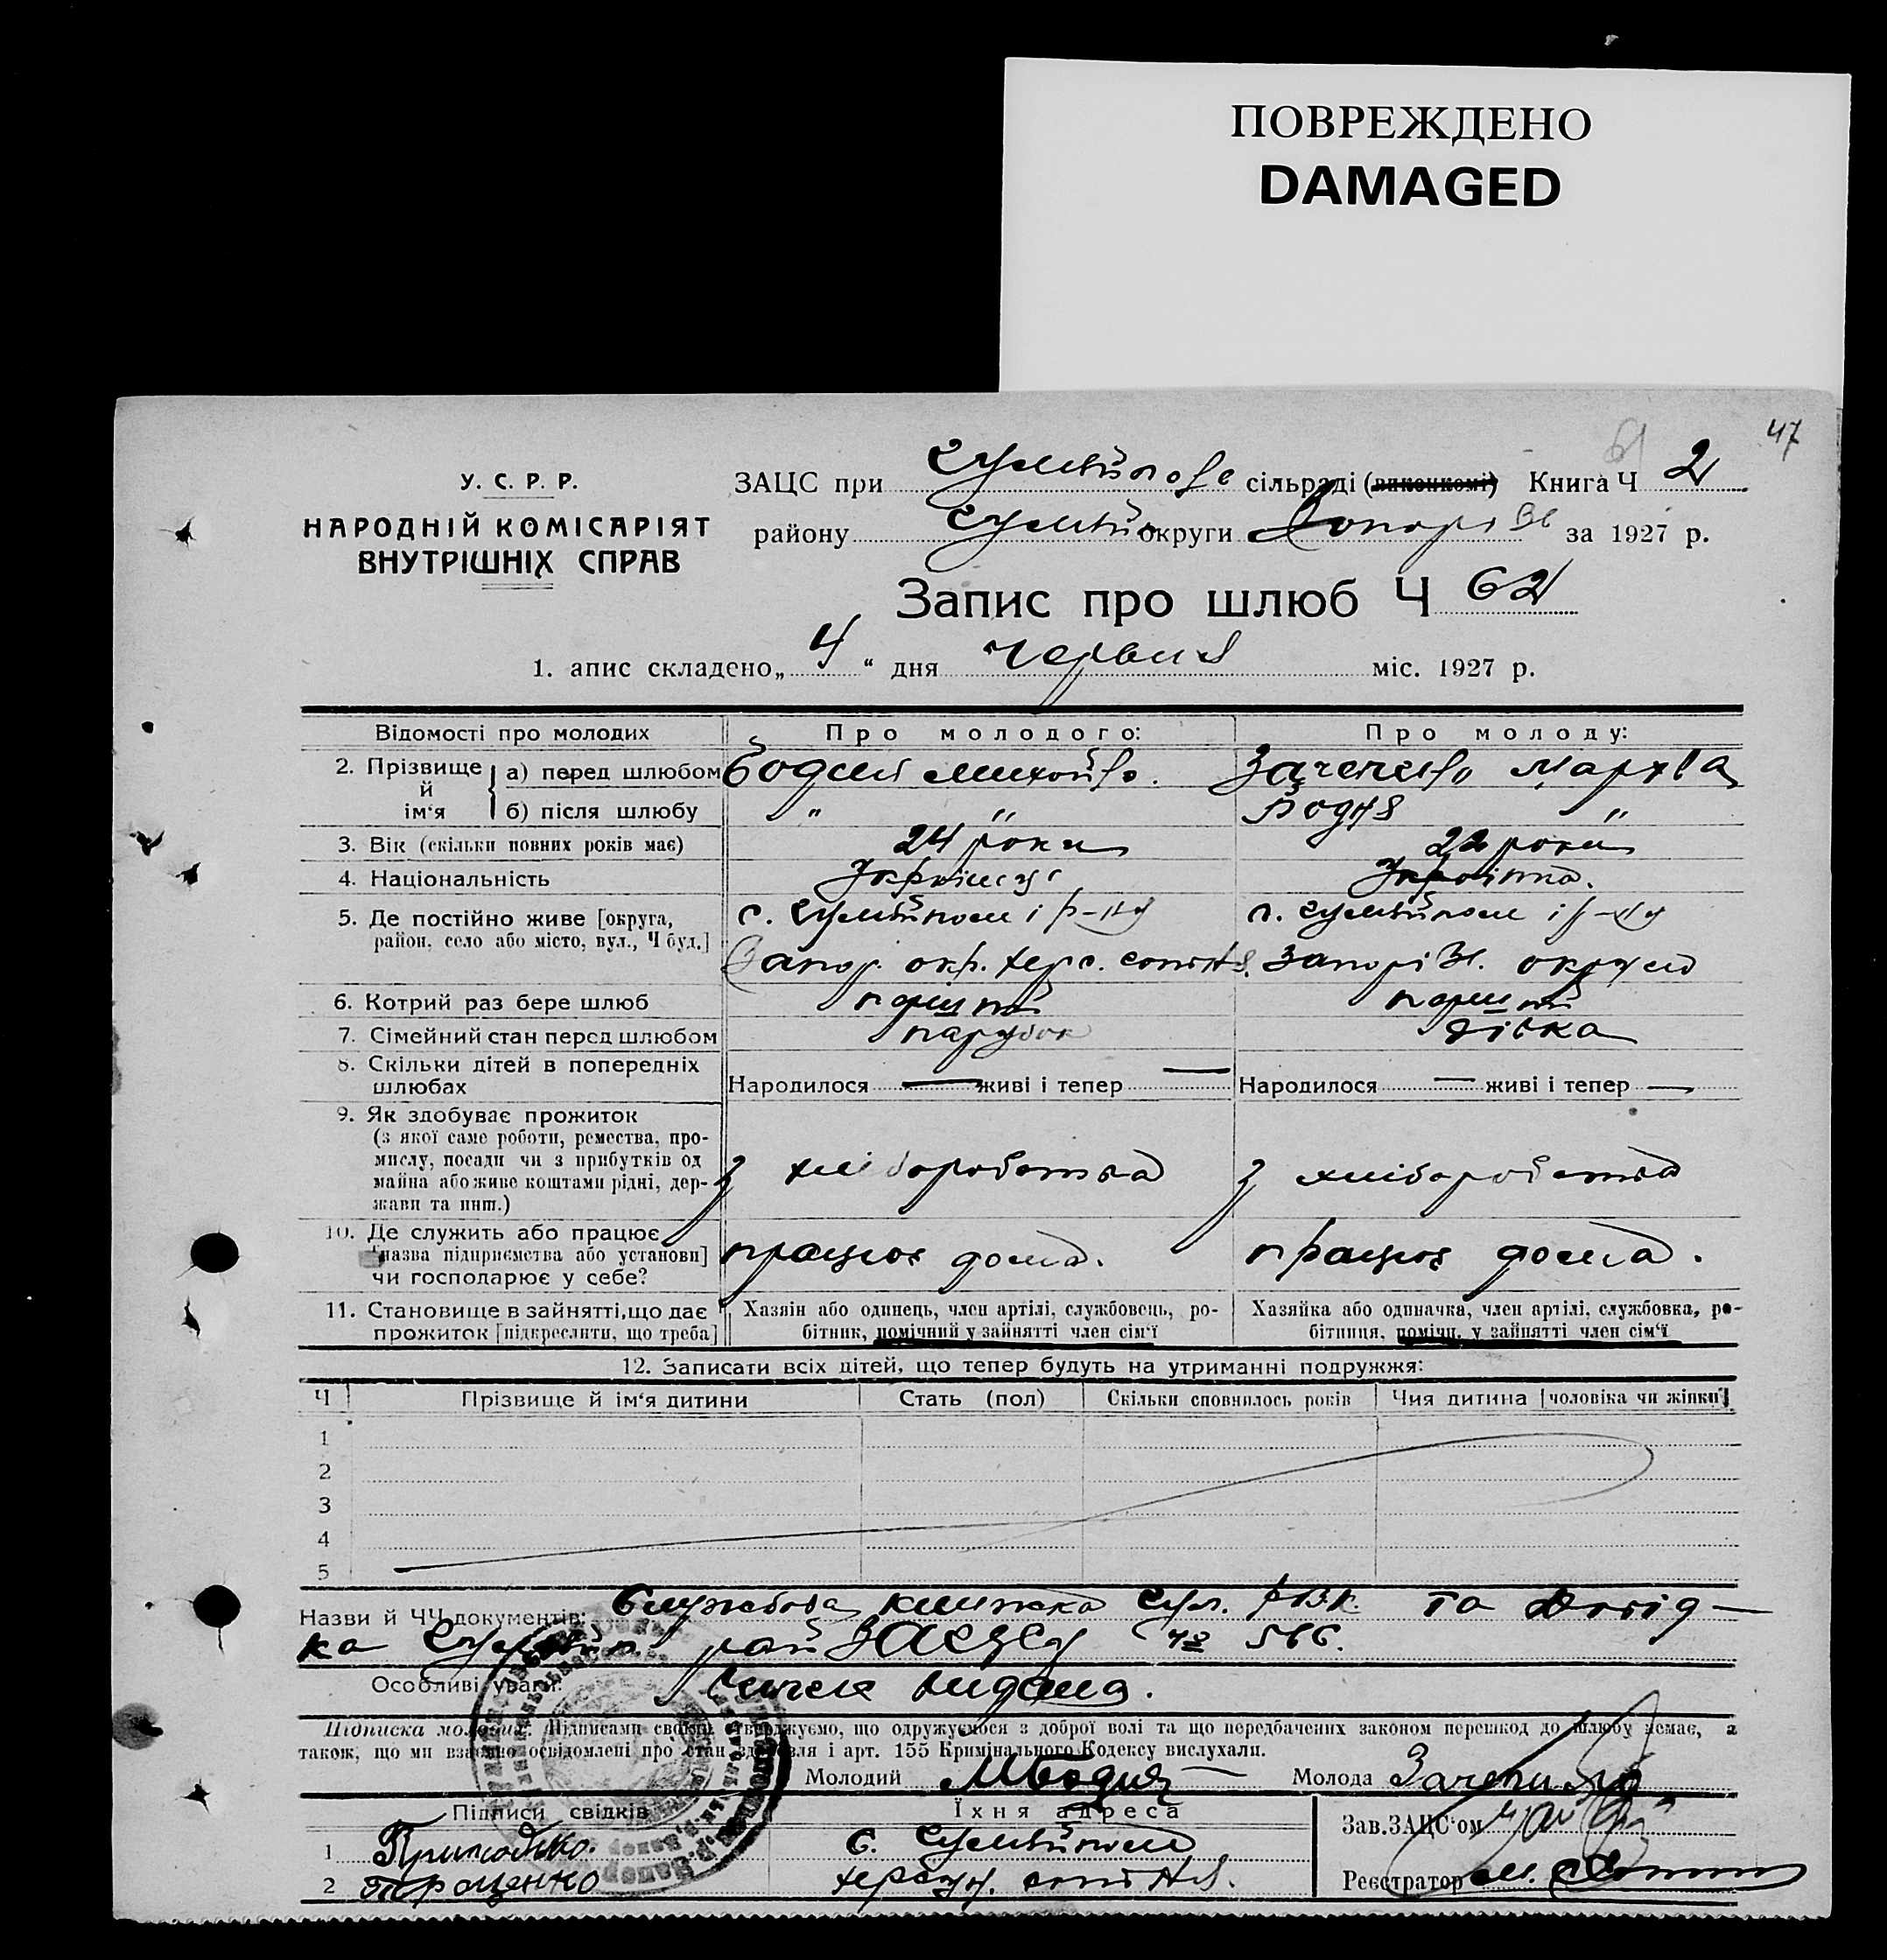 ПОВРЕЖДЕНО
DAMAGED
47
У. С. Р. Р.
НАРОДНІЙ КОМІСАРІЯТ
ВНУТРІШНІХ СПРАВ
ЗАЦС при сільраді (виконкомі) Книга Ч 2
району округи за 1927 р.
Запис про шлюб Ч 62
1. апис складено „ 4 “ дня червня міс. 1927 р.
Відомості про молодих Про молодого: Про молоду:
2. Прізвище й ім‘я а) перед шлюбом
б) після шлюбу „ „ Бодня „
3. Вік (скільки повних років має) 24 роки 22 роки
4. Національність Українец Українка.
5. Де постійно живе [округа, район, село або місто, вул., Ч буд.] с. і р-ну с. і р-ну
Запор. окр. Запоріз. округи
6. Котрий раз бере шлюб перший перший
7. Сімейний стан перед шлюбом парубок дівка
8. Скільки дітей в попередніх шлюбах Народилося — живі і тепер — Народилося — живі і тепер —
9. Як здобуває прожиток
(з якої саме роботи, ремества, про-
мислу, посади чи з прибутків од
майна або живе коштами рідні, дер-
жави та инш.) з хліборобства з хліборобства
10. Де служить або працює
[назва підприємства або установи]
чи господарює у себе? працює дома. працює дома.
11. Становище в зайнятті, що дає прожиток [підкреслити, що треба]
Хазяін або одинець, член артілі, службовець, ро-
бітник, помічний у зайнятті член сім‘ї
Хазяйка або одиначка, член артілі, службовка, ро-
бітниця, помічн. у зайнятті член сім‘ї
12. Записати всіх дітей, що тепер будуть на утриманні подружжя:
Ч Прізвище й ім‘я дитини Стать (пол) Скільки сповнилось років Чия дитина [чоловіка чи жінки]
1
2
3
4
5
Назви й ЧЧ документів: Службова книжка РВК та Довід-
ка рай ЗАГСу № 566.
Особливі уваги: видана.
Підписка молодих: Підписами своїми стверджуємо, що одружуємося з доброї волі та що передбачених законом перешкод до шлюбу немає, а
також, що ми взаємно освідомлені про стан здоровля і арт. 155 Кримінального Кодексу вислухали.
Молодий МБодня Молода
Підписи свідків Їхня адреса Зав.ЗАЦС‘ом
1 Приходько. с.
2 Терещенко Реєстратор